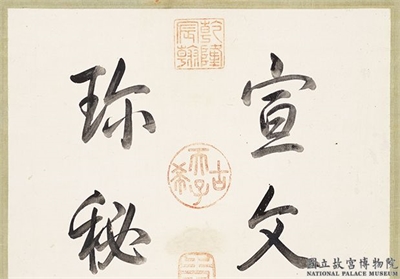 宣文
珎秘
乾隆
宸翰
古希天子
國立故宮博物院
NATIONAL PALACE MUSEUM